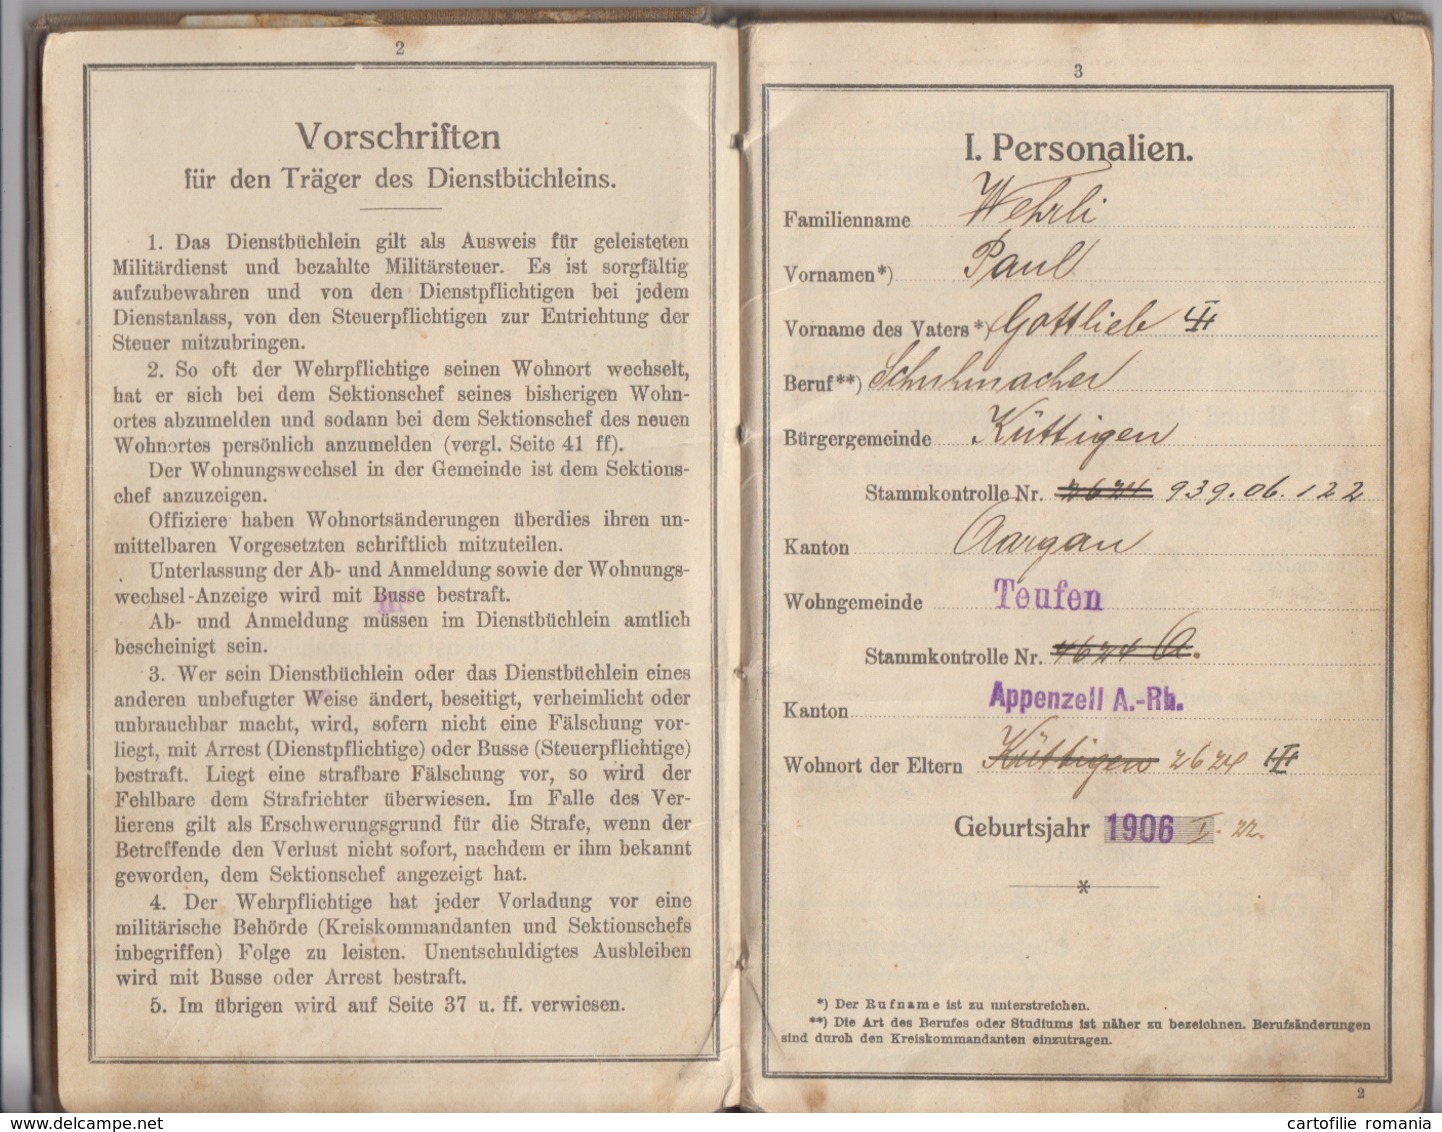 2
Vorschriften
für den Träger des Dienstbüchleins.
1. Das Dienstbüchlein gilt als Ausweis für geleisteten
Militärdienst und bezahlte Militärsteuer. Es ist sorgfältig
aufzubewahren und von den Dienstpflichtigen bei jedem
Dienstanlass, von den Steuerpflichtigen zur Entrichtung der
Steuer mitzubringen.
2. So oft der Wehrpflichtige seinen Wohnort wechselt,
hat er sich bei dem Sektionschef seines bisherigen Wohn-
ortes abzumelden und sodann bei dem Sektionschef des neuen
Wohnortes persönlich anzumelden (vergl. Seite 41 ff).
Der Wohnungswechsel in der Gemeinde ist dem Sektions-
chef anzuzeigen.
Offiziere haben Wohnortsänderungen überdies ihren un-
mittelbaren Vorgesetzten schriftlich mitzuteilen.
Unterlassung der Ab- und Anmeldung sowie der Wohnungs-
wechsel-Anzeige wird mit Busse bestraft.
Ab- und Anmeldung müssen im Dienstbüchlein amtlich
bescheinigt sein.
3. Wer sein Dienstbüchlein oder das Dienstbüchlein eines
anderen unbefugter Weise ändert, beseitigt, verheimlicht oder
unbrauchbar macht, wird, sofern nicht eine Fälschung vor-
liegt, mit Arrest (Dienstpflichtige) oder Busse (Steuerpflichtige)
bestraft. Liegt eine strafbare Fälschung vor, so wird der
Fehlbare dem Strafrichter überwiesen. Im Falle des Ver-
lierens gilt als Erschwerungsgrund für die Strafe, wenn der
Betreffende den Verlust nicht sofort, nachdem er ihm bekannt
geworden, dem Sektionschef angezeigt hat.
4. Der Wehrpflichtige hat jeder Vorladung vor eine
militärische Behörde (Kreiskommandanten und Sektionschefs
inbegriffen) Folge zu leisten. Unentschuldigtes Ausbleiben
wird mit Busse oder Arrest bestraft.
5. Im übrigen wird auf Seite 37 u. ff. verwiesen.
3
I. Personalien.
Familienname Wehrli
Vornamen*) Paul
Vorname des Vaters*) Gottlieb
Beruf**) Schuhmacher
Bürgergemeinde Küttigen
Stammkontrolle Nr. 2624 939.06.122
Kanton Aargau
Wohngemeinde Teufen
Stammkontrolle Nr. 2624 A.
Kanton Appenzell A.-Rh.
Wohnort der Eltern Küttigen 2624
Geburtsjahr 1906 I. 22.
*
*) Der Rufname ist zu unterstreichen.
**) Die Art des Berufes oder Studiums ist näher zu bezeichnen. Berufsänderungen
sind durch den Kreiskommandanten einzutragen.
2
www.delcampe.net
cartofilie romania